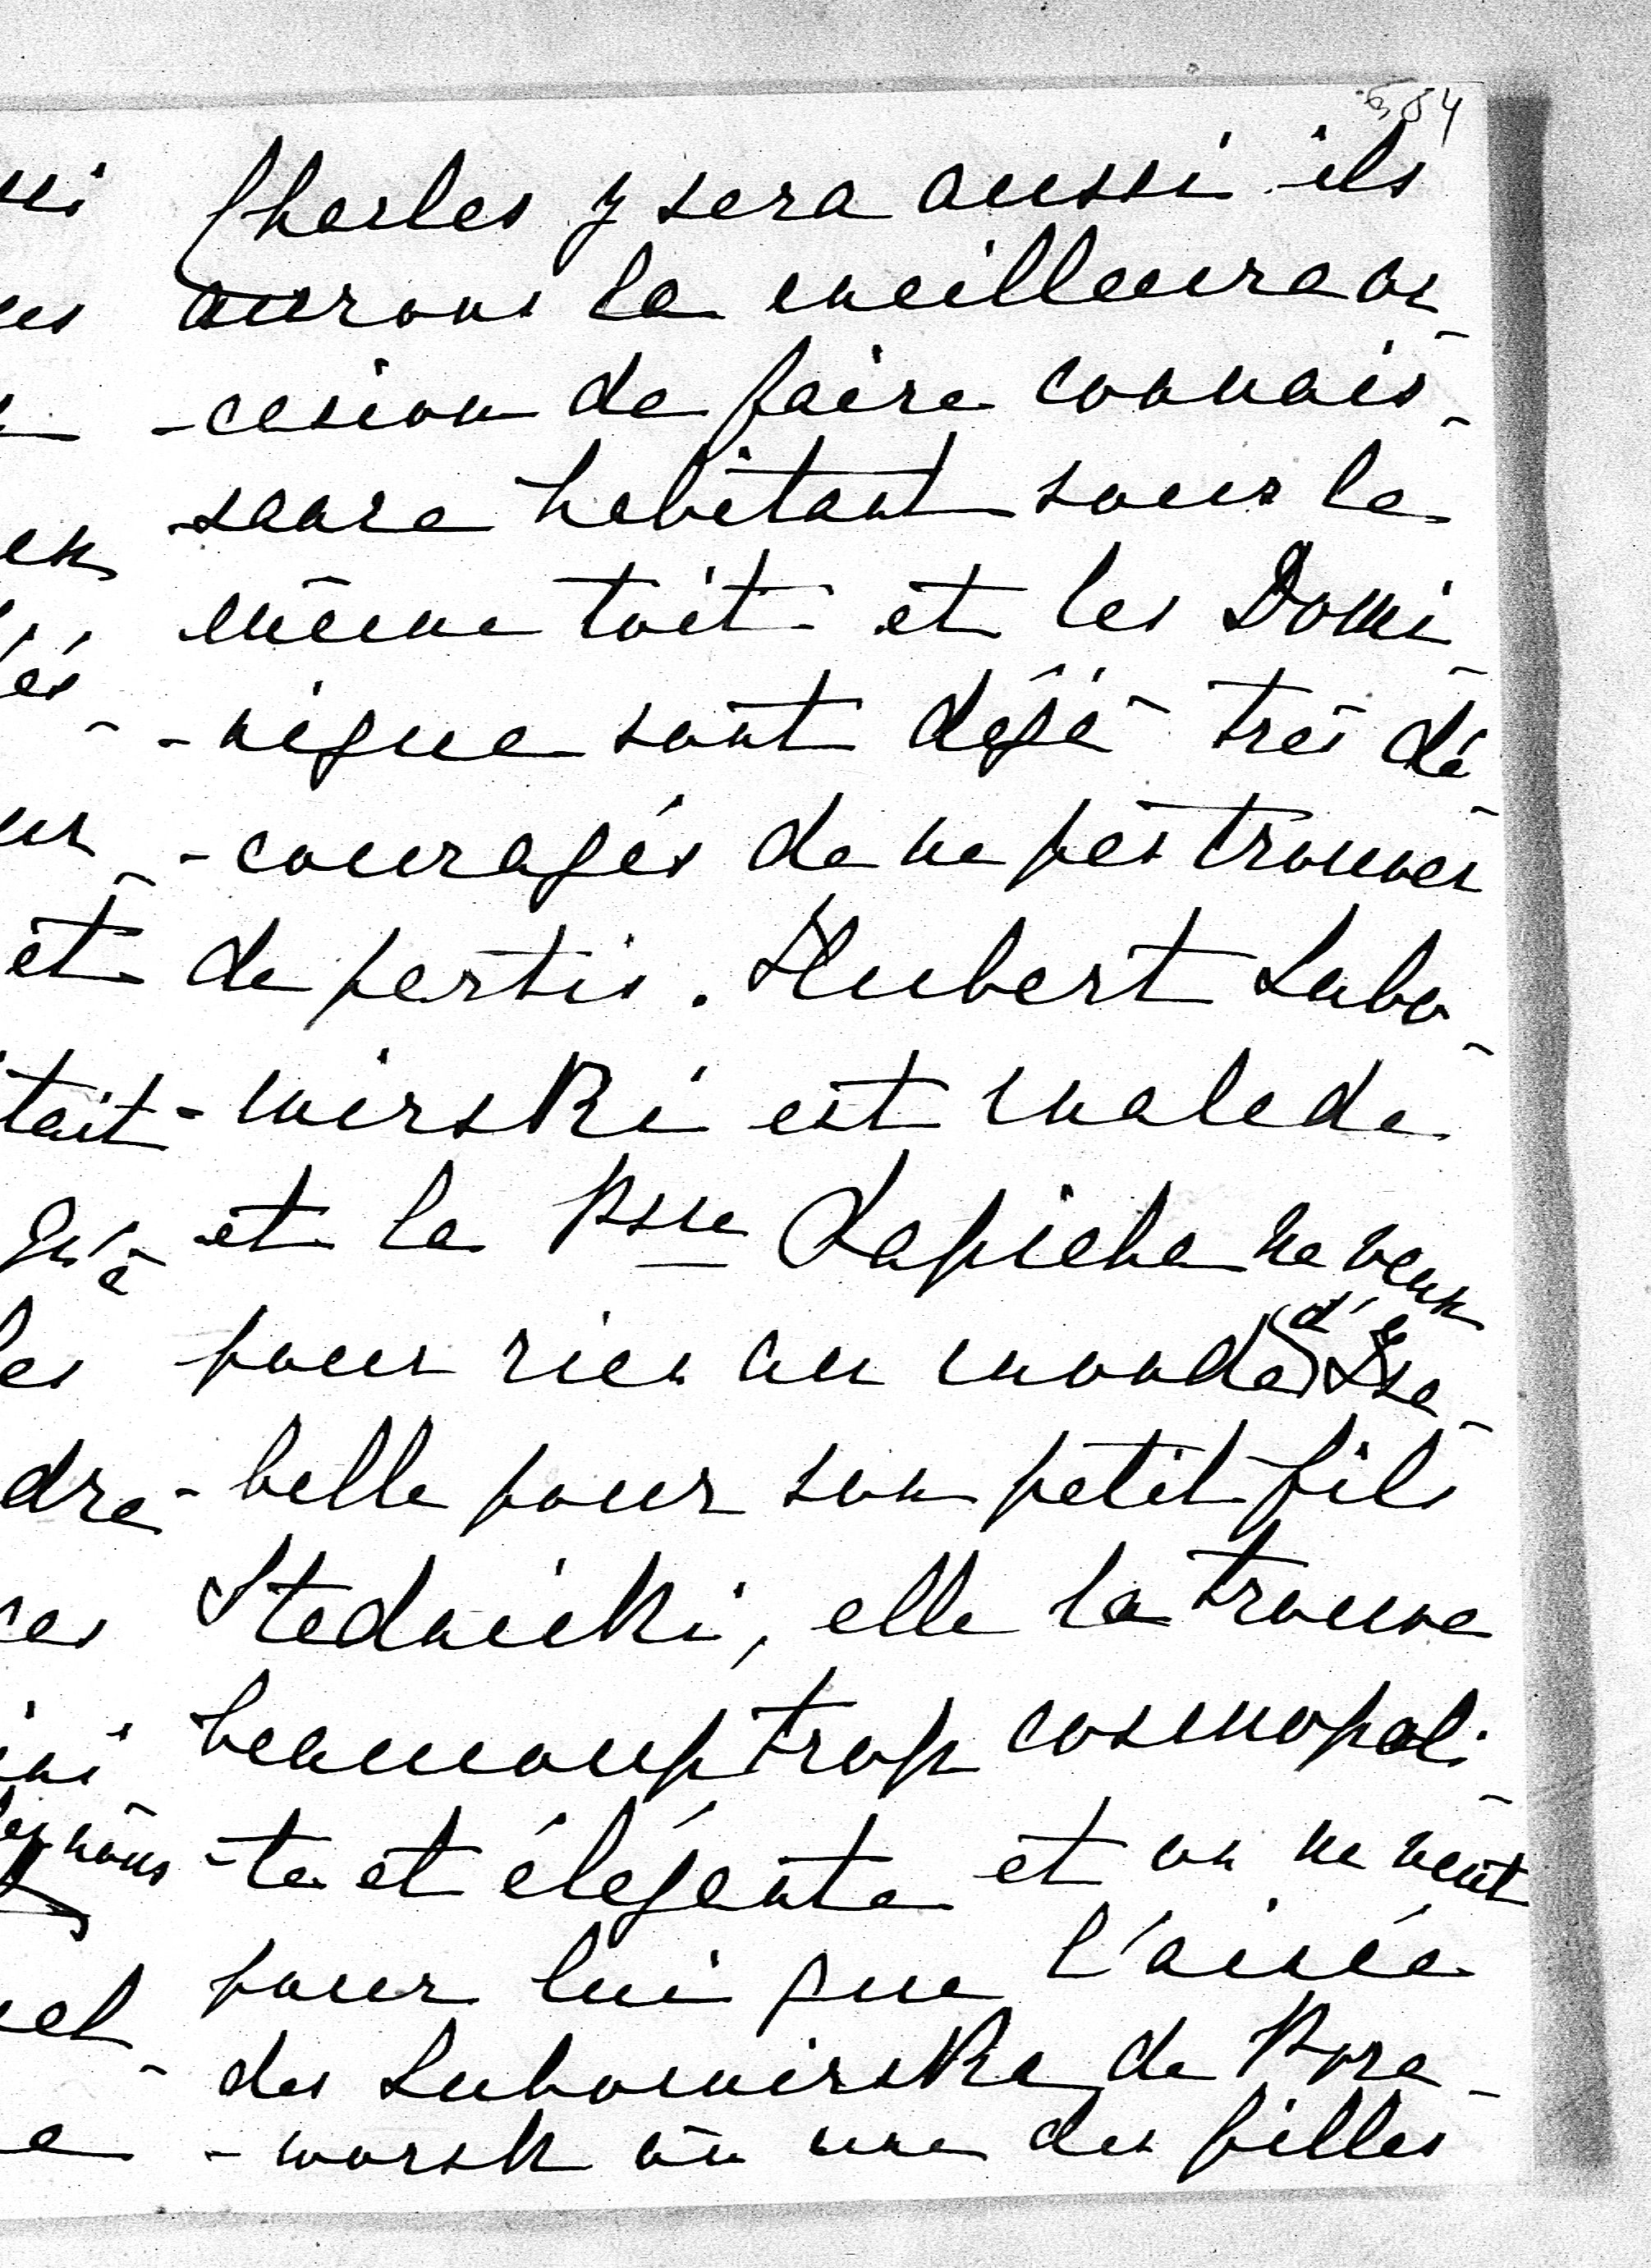 54
Charles y sera aussi ils
aurons la meilleure oc-
-casion de faire connais-
sance habitant sous le
même toit et les Domi-
-nique sont déjà très dé-
-couragés de ne pas trouver
de partis. Hubert Lubo-
-mirski est malade
et la Psse Sapieha ne veux
pour rien au monde d'Isa-
-belle pour son petit fils
Stadnicki, elle la trouve
beaucoup trop cosmopoli-
-te et élégante et on ne veut
pour lui que l'ainée
des Lubomirska de Prze-
-worsk où une des filles